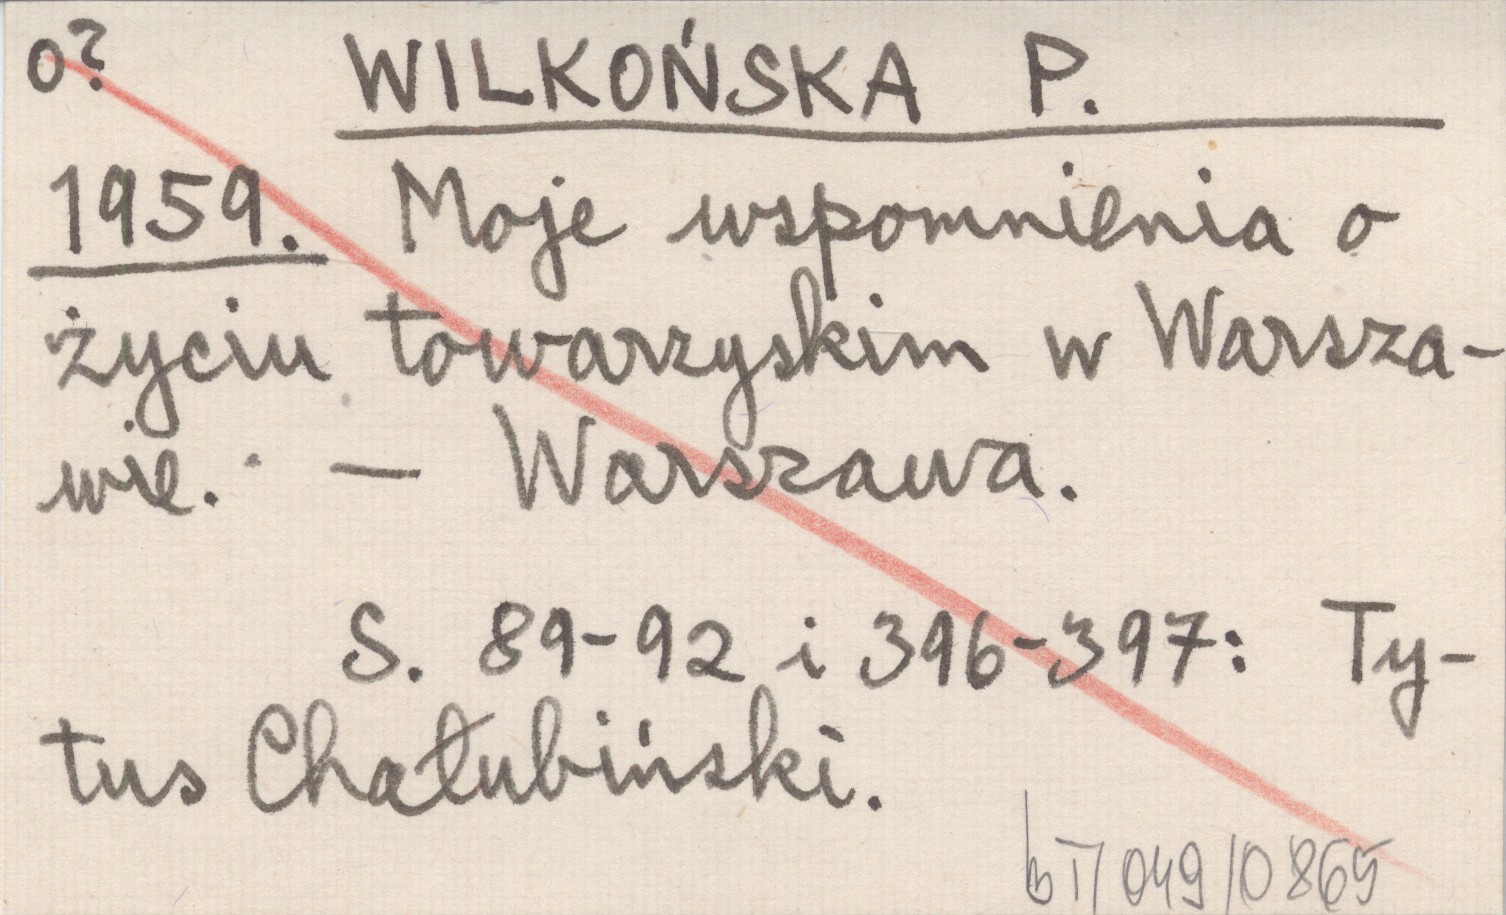 o? WILKOŃSKA P.
1959. Moje wspomnienia o
życiu towarzyskim w Warsza-
wie. — Warszawa.
S. 89-92 i 396-397: Ty-
tus Chałubiński.
bT/049/0865